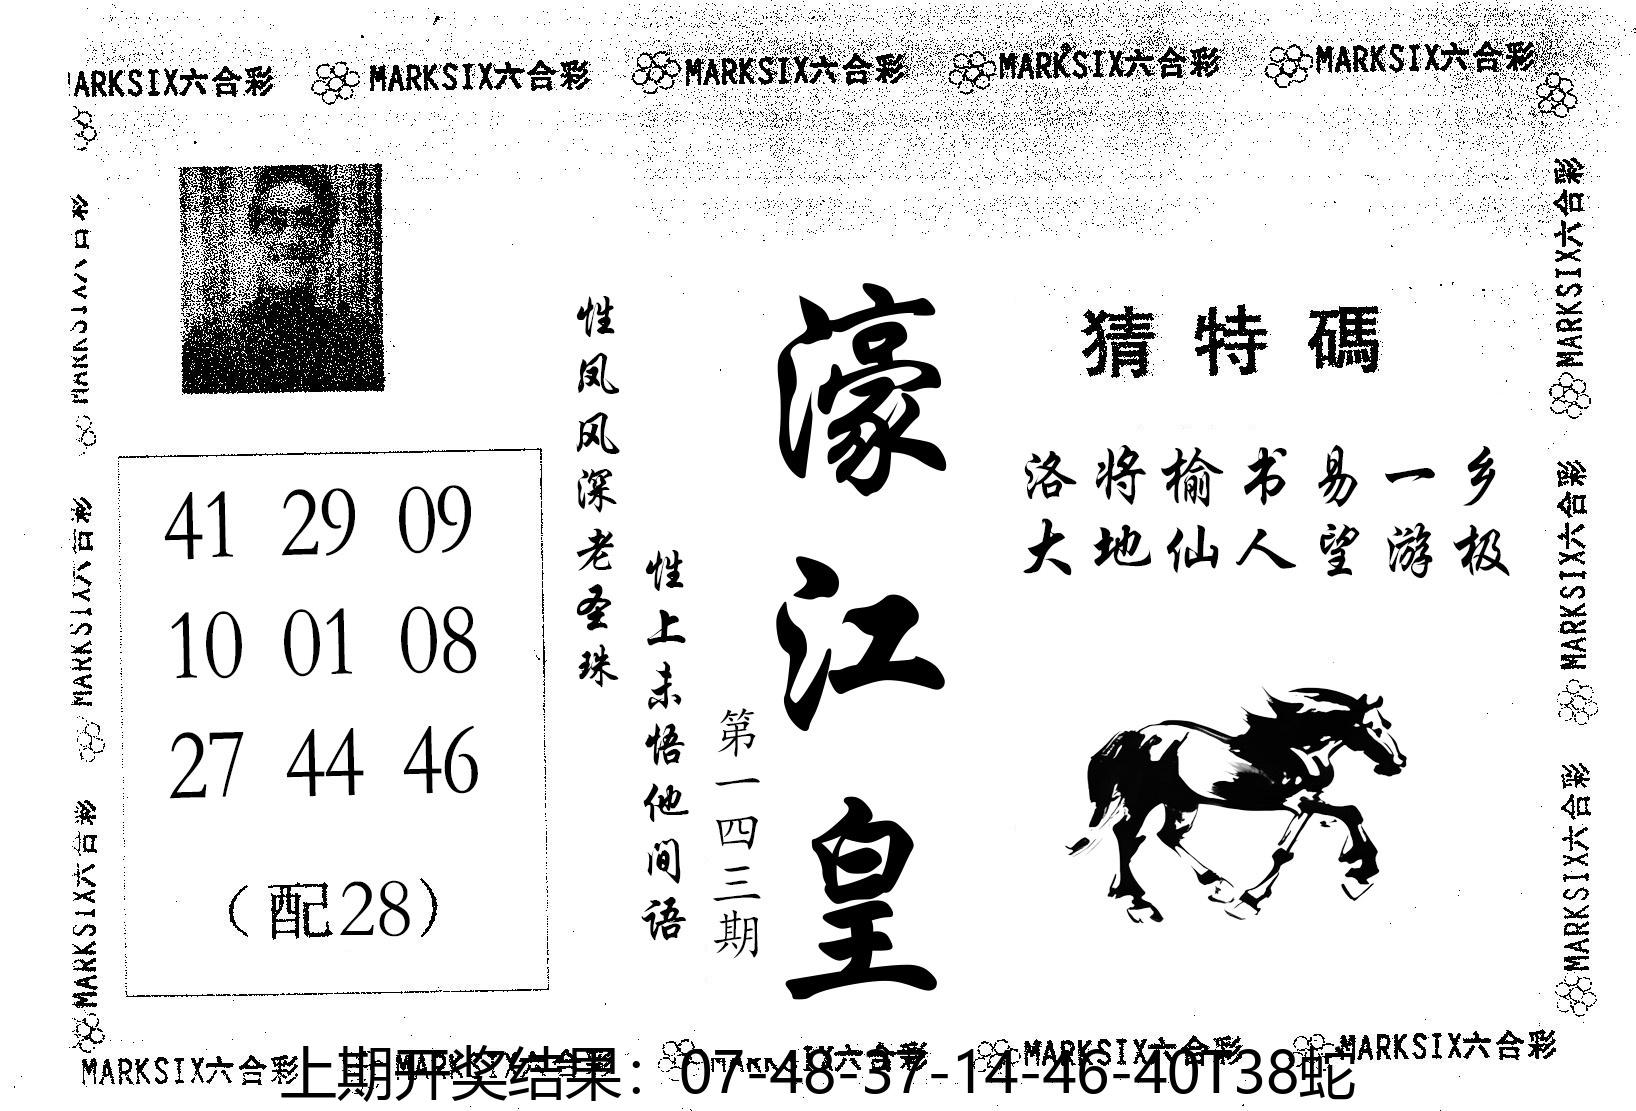 MARKSIX六合彩 MARKSIX六合彩 MARKSIX六合彩 MARKSIX六合彩 MARKSIX六合彩
猜特碼
洛将榆书易一乡
大地仙人望游极
濠江皇
第一四三期
性上未悟他间语
性凤风深老圣珠
41 29 09
10 01 08
27 44 46
（配28）
MARKSIX六合彩
MARKSIX六合彩
MARKSIX六合彩
MARKSIX六合彩
MARKSIX六合彩
MARKSIX六合彩
MARKSIX六合彩 MARKSIX六合彩 MARKSIX六合彩 MARKSIX六合彩 MARKSIX六合彩
上期开奖结果：07-48-37-14-46-40T38蛇